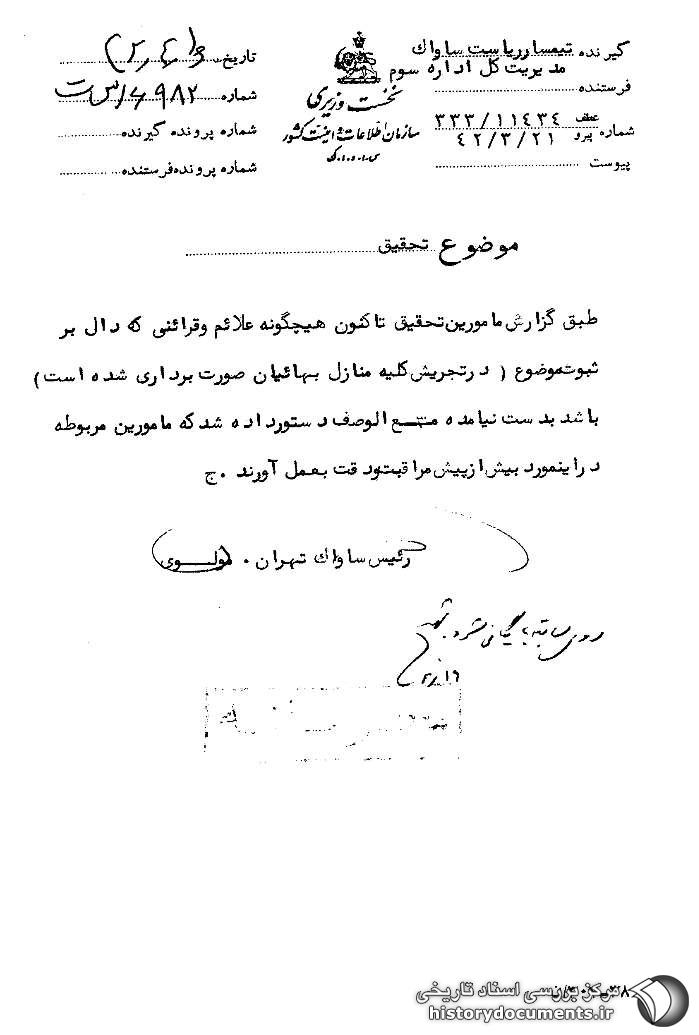 گیرنده تیمسار ریاست ساواک
مدیریت کل اداره سوم
فرستنده
عطف ۳۳۳/۱۱۴۳۴
شماره پیرو ۴۲/۳/۲۱
پیوست
نخست وزیری
سازمان اطلاعات و امنیت کشور
س.ا.و.ا.ک
تاریخ
شماره
شماره پرونده گیرنده
شماره پرونده فرستنده
موضوع تحقیق
طبق گزارش مامورین تحقیق تاکنون هیچگونه علائم وقرائنی که دال بر
ثبوت موضوع ( درتجریش کلیه منازل بهائیان صورت برداری شده است)
باشد بدست نیامده منتبع الوصف دستورداده شد که مامورین مربوطه
دراینمورد بیش ازپیش مراقبت ودقت بعمل آورند . ج
رئیس ساواک تهران . مولوی
مرکز بررسی اسناد تاریخی
historydocuments.ir